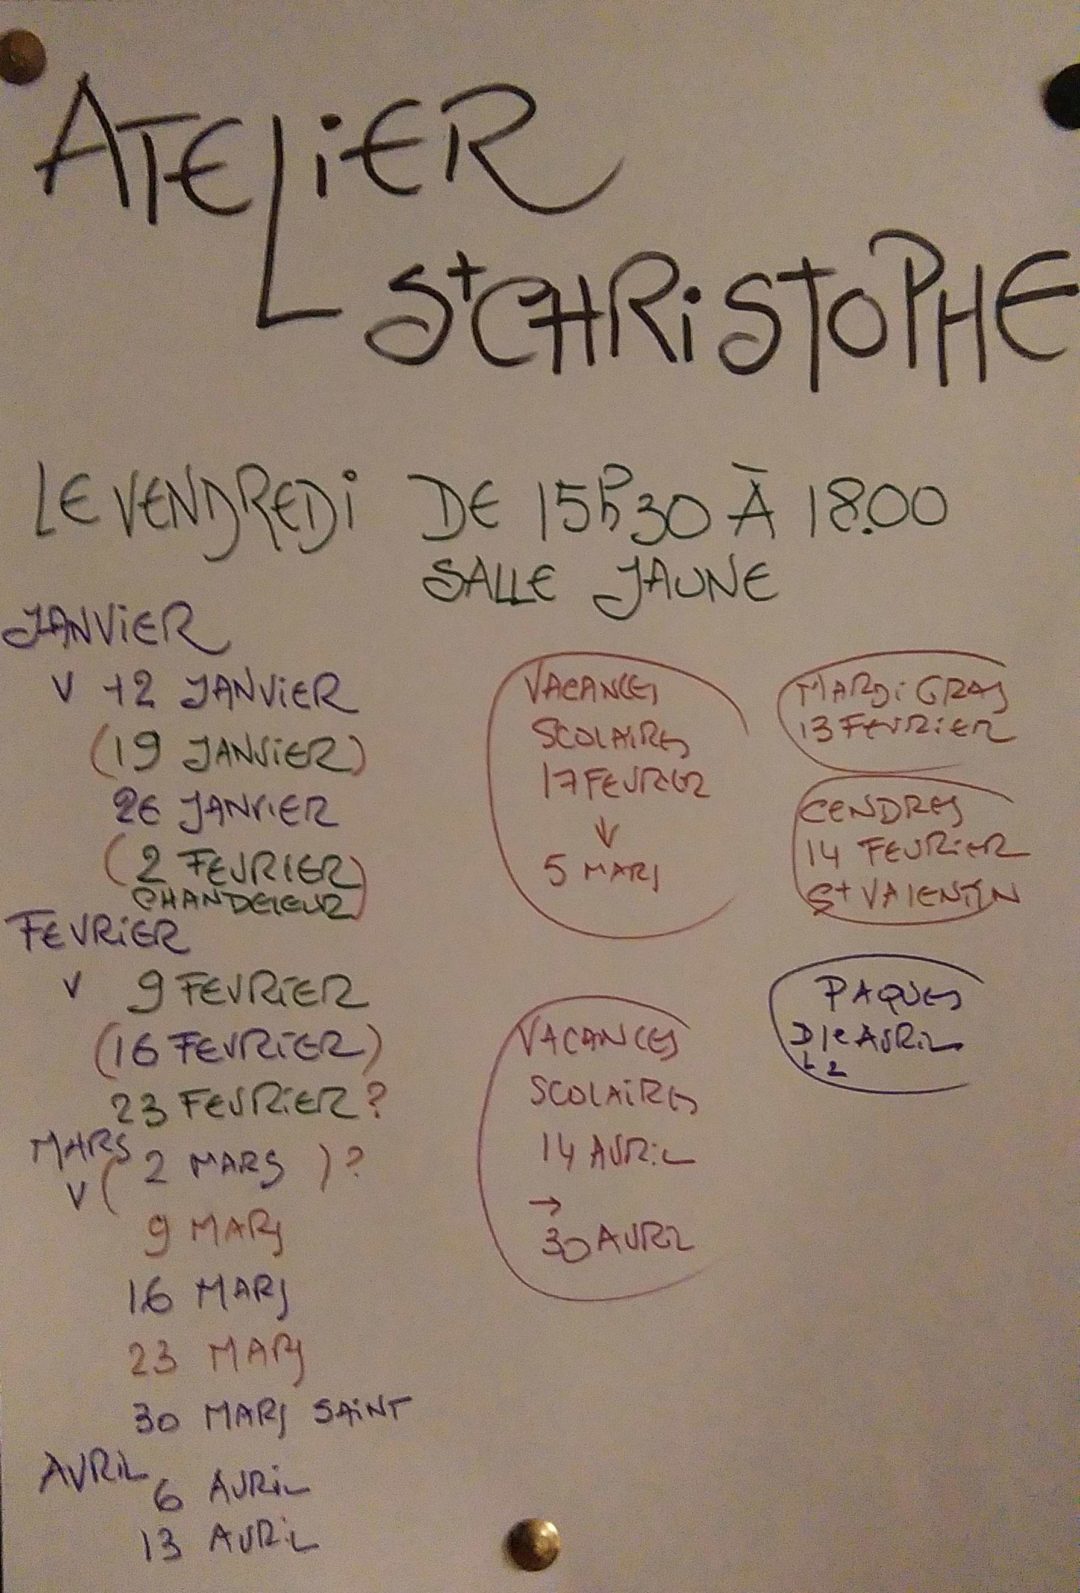 ATELIER
St CHRISTOPHE
LE VENDREDI DE 15h30 À 18.00
SALLE JAUNE
JANVIER
V 12 JANVIER
(19 JANVIER)
26 JANVIER
(2 FEVRIER)
CHANDELEUR
FEVRIER
V 9 FEVRIER
(16 FEVRIER)
23 FEVRIER ?
MARS
V ( 2 MARS ) ?
9 MARS
16 MARS
23 MARS
30 MARS SAINT
AVRIL
6 AVRIL
13 AVRIL
VACANCES
SCOLAIRES
17 FEVRIER
↓
5 MARS
VACANCES
SCOLAIRES
14 AVRIL
→
30 AVRIL
MARDI GRAS
13 FEVRIER
CENDRES
14 FEVRIER
St VALENTIN
PAQUES
D 1e AVRIL
L 2